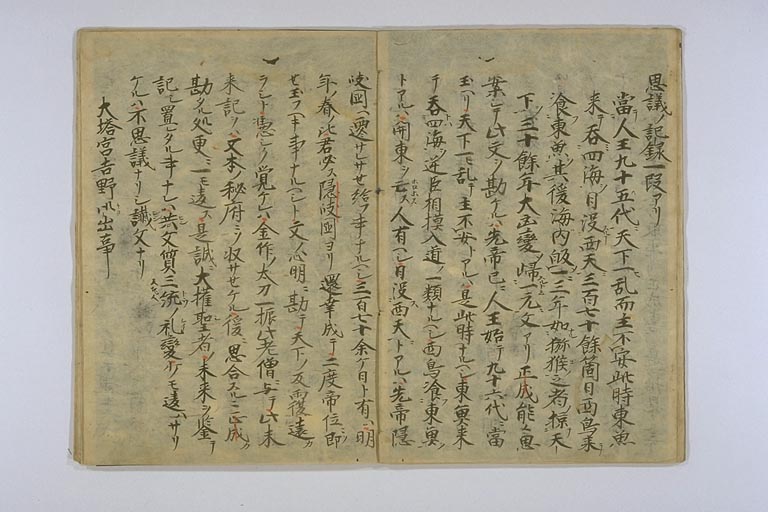 思議ノ記録一段アリ
當人王九十五代天下一乱而主不安此時東魚
来テ呑四海ヲ日没西天三百七十餘箇日西鳥来テ
食東魚ヲ其後海内皈一三年如獼猴之者掠天
下三十餘年大凶變ノ帰一元文アリ正成能々思
案シテ此文ヲ勘ケルハ先帝已人王始テ九十六代ニ當
玉ヘリ天下一ヒ乱テ主不安トアルハ是此時ナルヘシ東魚来
テ呑四海ヲ逆臣相摸入道ノ一類ナルヘシ西鳥湌東魚ヲ
トアルハ関東ヲ亡ス人有ヘシ日没西天トアルハ先帝隠
岐国ヘ遷サレサセ給フ事ナルヘシ三百七十余ケ日ト有ハ明
年ノ春ノ比君必ス隠岐国ヨリ還幸成テ二度帝位即
セ玉フヘキ事ナルヘシト文ノ心明ニ勘テ天下ノ反覆遠カ
ラシト憑シク覚ケレハ金作ノ太刀一振此老僧与テ此未
来記ヲハ又本ノ秘府ニソ収サセケル後ニ思合スルニ正成カ
勘タル処更ニ一モ違ス是誠ニ大權聖者ノ末来ヲ鑒テ
記シ置レタル事ナレハ共文質三統ノ礼變少シモ違ハサリ
ケルハ不思議ナリシ讖文ナリ
大塔宮吉野ル出事